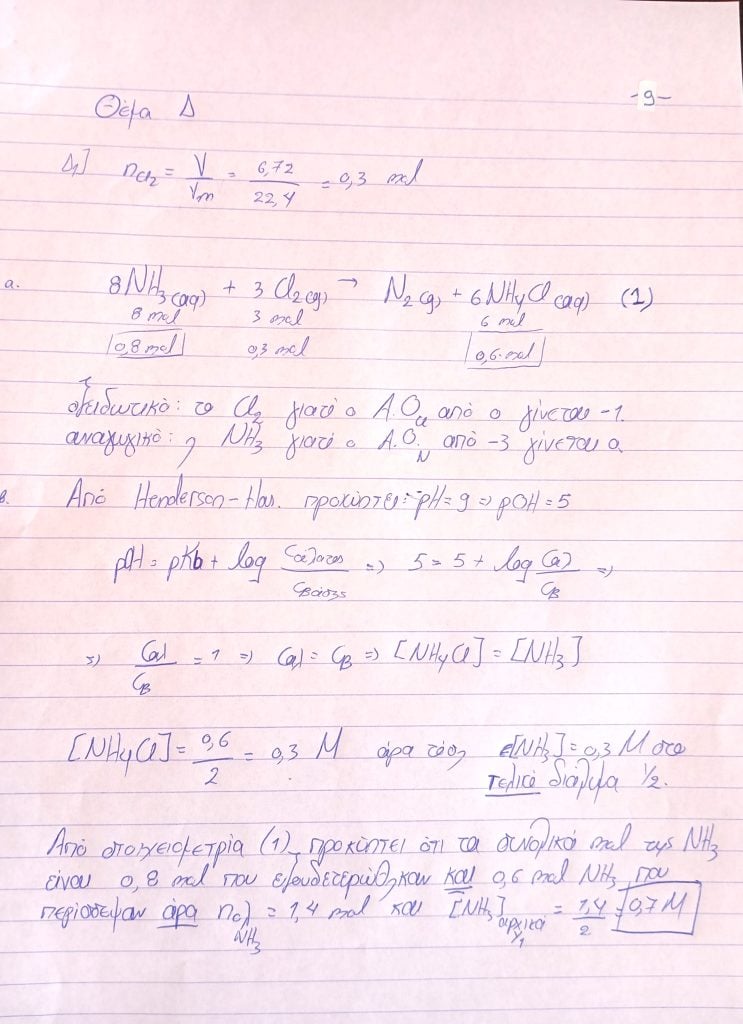 -9-
Θέμα Δ
Δ1] nCl2 = V/Vm = 6,72/22,4 = 0,3 mol
a. 8NH3(aq) + 3Cl2(g) → N2(g) + 6NH4Cl(aq) (1)
8 mol 3 mol 6 mol
0,8 mol 0,3 mol 0,6 mol
οξειδωτικό: το Cl2 γιατί ο Α.Ο.Cl από 0 γίνεται -1.
αναγωγικό: η NH3 γιατί ο Α.Ο.N από -3 γίνεται 0.
β. Από Henderson-Has. προκύπτει: pH = 9 ⇒ pOH = 5
pOH = pKb + log Cάλατος/Cβάσης ⇒ 5 = 5 + log Cαλ/CB ⇒
⇒ Cαλ/CB = 1 ⇒ Cαλ = CB ⇒ [NH4Cl] = [NH3]
[NH4Cl] = 0,6/2 = 0,3 M άρα τόση [NH3] = 0,3 M στο
τελικό διάλυμα Υ2.
Από στοιχειομετρία (1), προκύπτει ότι τα συνολικά mol της NH3
είναι 0,8 mol που εξουδετερώθηκαν και 0,6 mol NH3 που
περίσσεψαν άρα nολ NH3 = 1,4 mol και [NH3]αρχικά Υ1 = 1,4/2 = 0,7 M